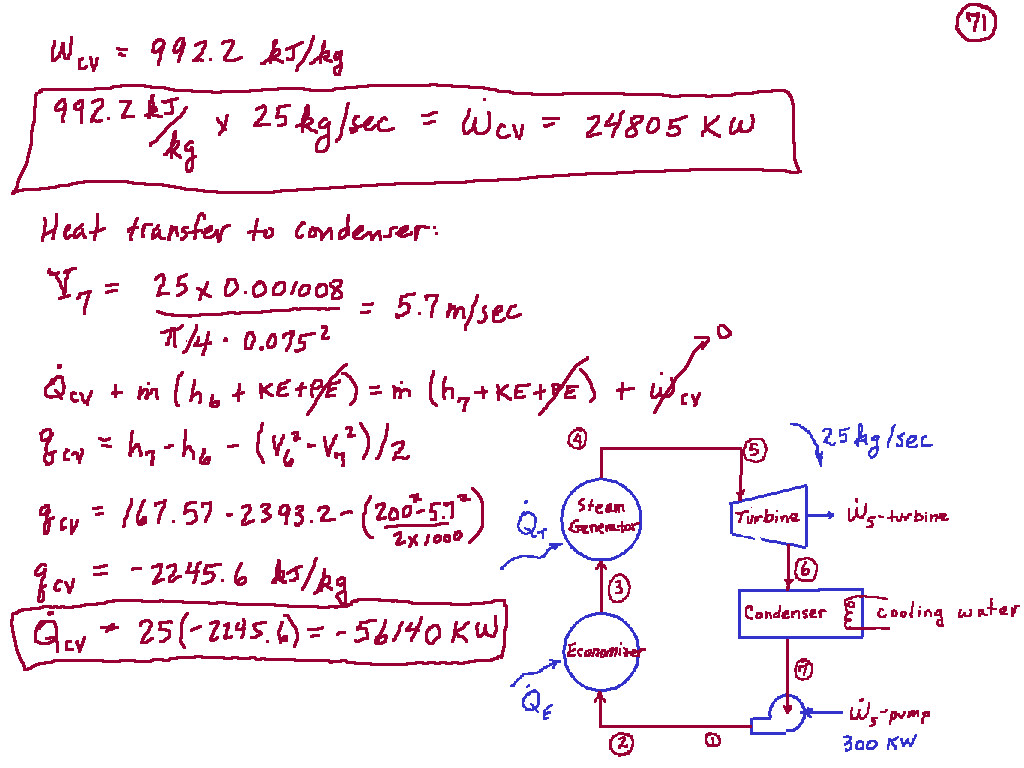 71
W_cv = 992.2 kJ/kg
992.2 kJ/kg x 25 kg/sec = Ẇ_cv = 24805 KW
Heat transfer to condenser:
V_7 = (25 x 0.001008)/(π/4 · 0.075²) = 5.7 m/sec
Q̇_cv + ṁ (h_6 + KE + PE) = ṁ (h_7 + KE + PE) + Ẇ_cv → 0
q_cv = h_7 - h_6 - (V_6² - V_7²)/2
q_cv = 167.57 - 2393.2 - ((200² - 5.7²)/(2 x 1000))
q_cv = -2245.6 kJ/kg
Q̇_cv = 25(-2245.6) = -56140 KW
4
5
25 kg/sec
Steam
Generator
Q̇_T
Turbine
Ẇ_s-turbine
3
6
Condenser
cooling water
Economizer
Q̇_E
7
Ẇ_s-pump
300 KW
2
1